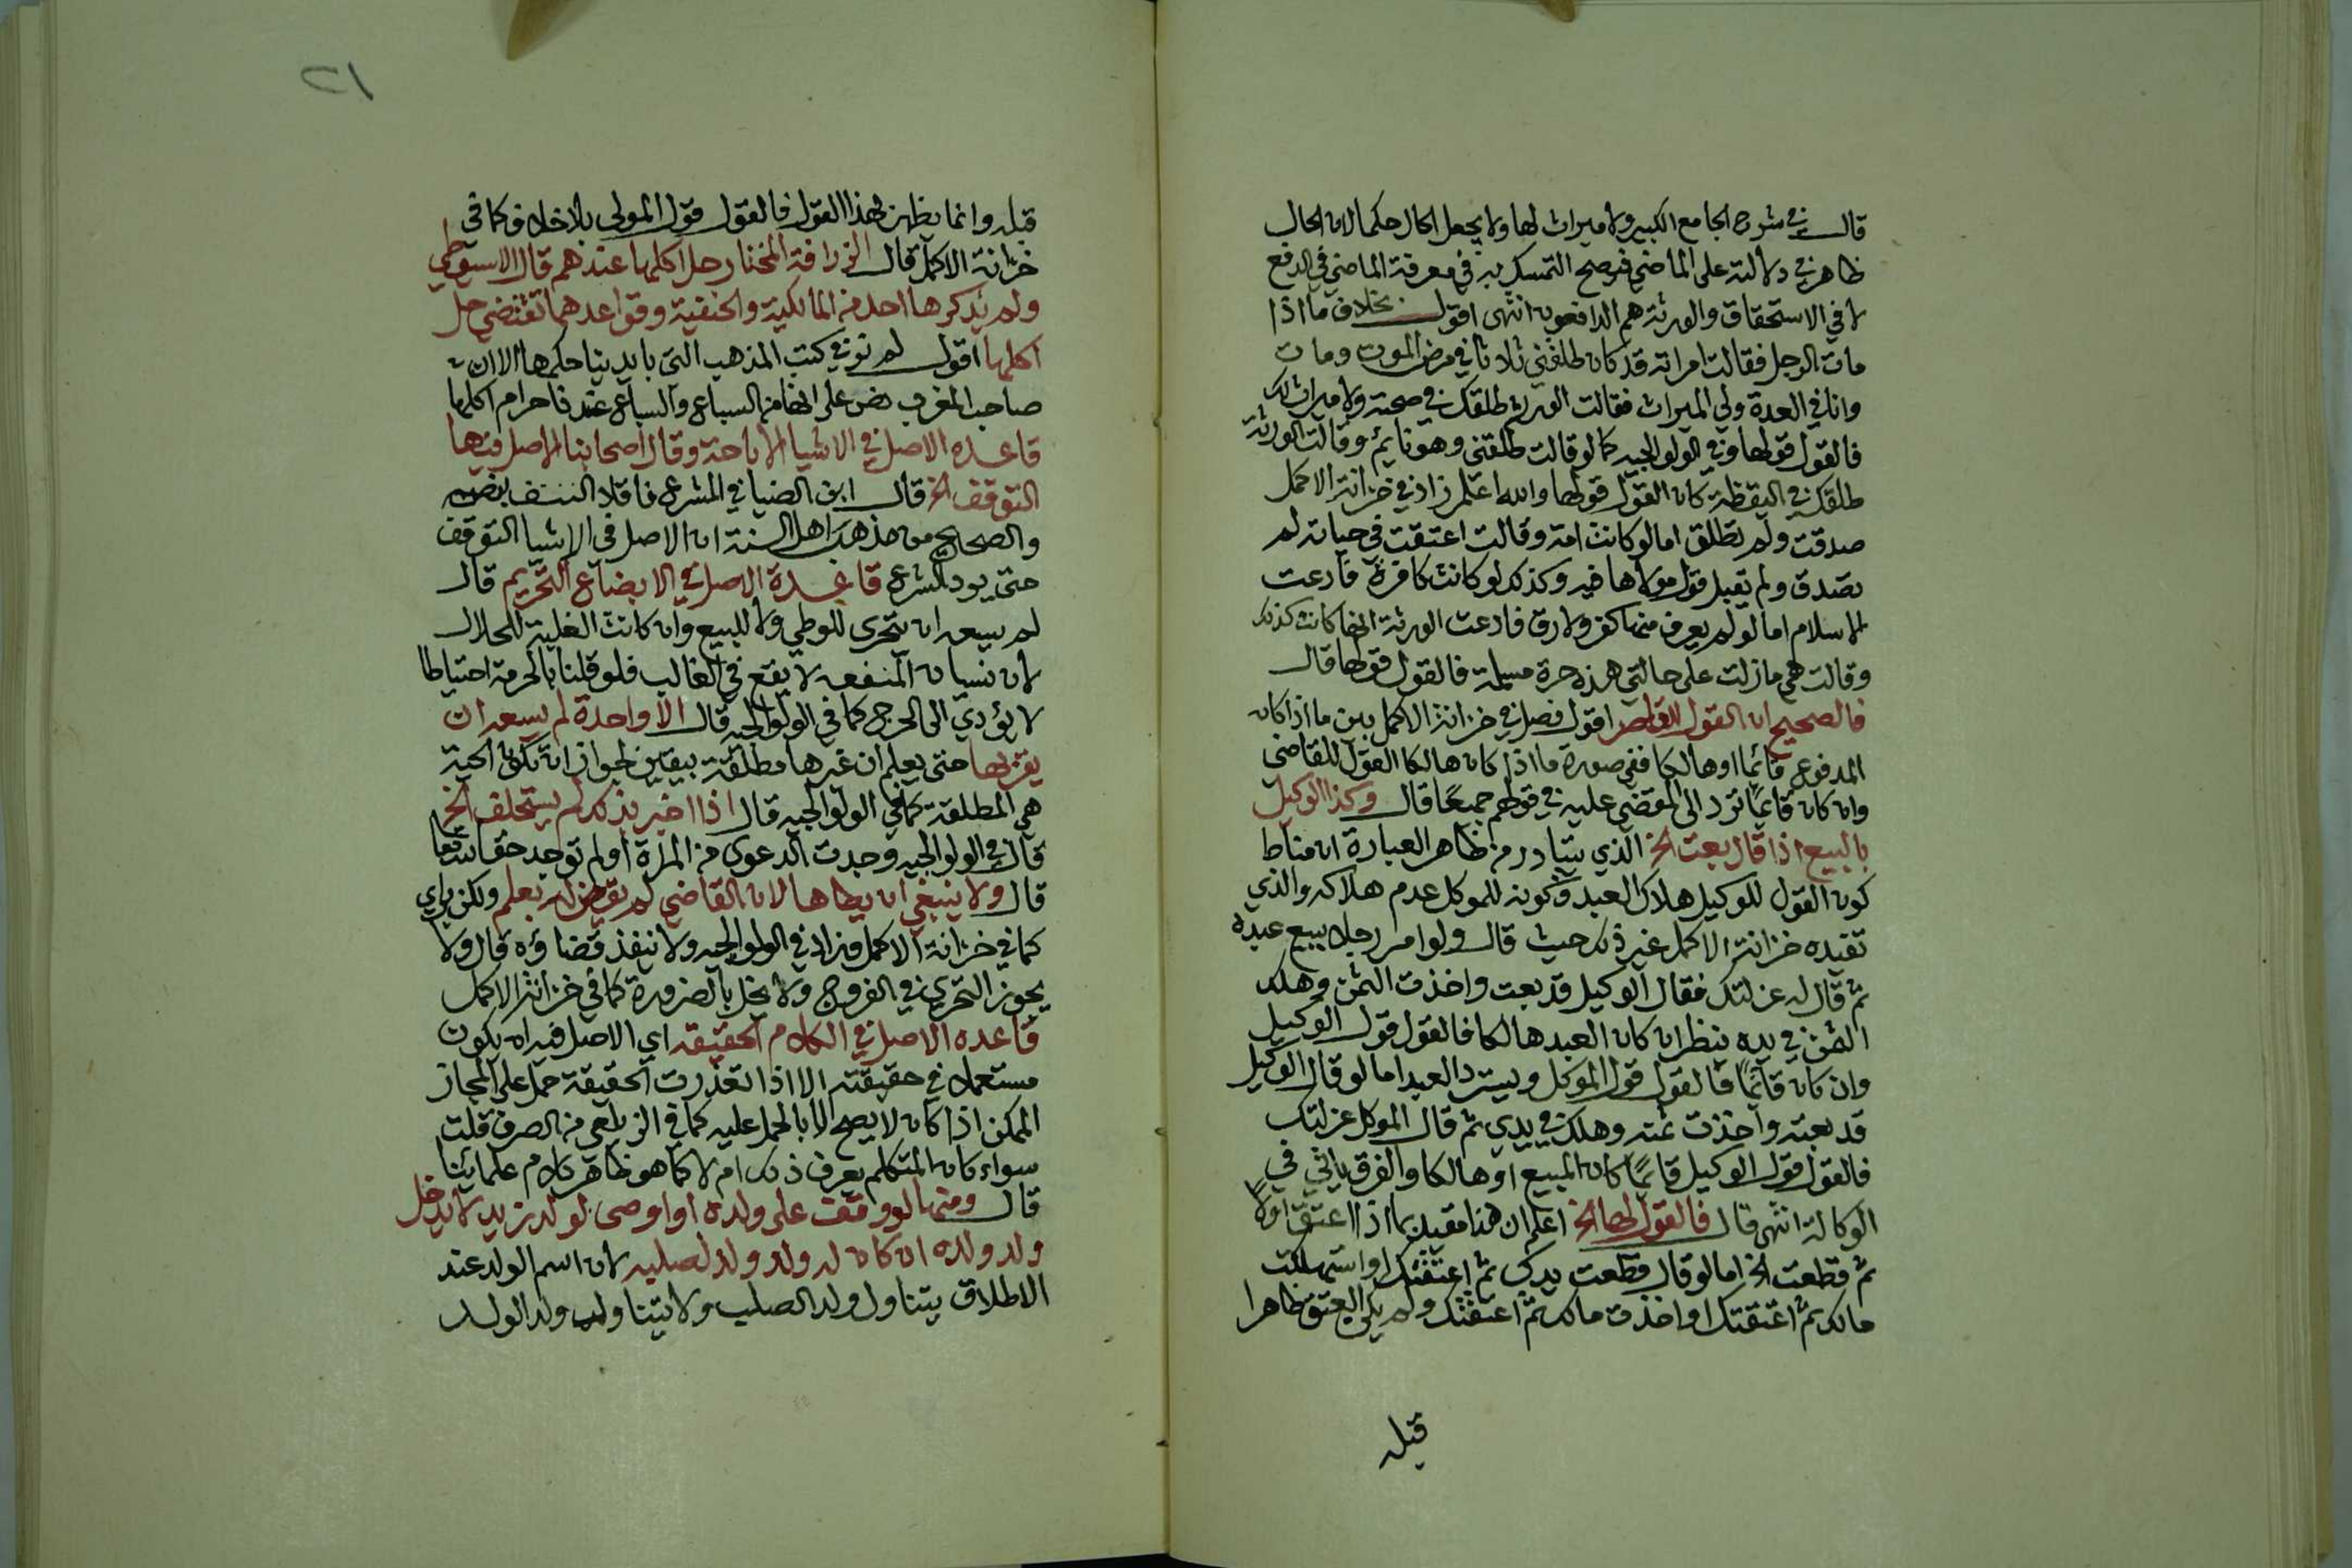 قال في شرح الجامع الكبير ولا ميراث لها ولا يجعل الحال حكما لان الحال
ظاهر في دلالته على الماضي فيصح التمسك به في معرفة الماضي في الدفع
لا في الاستحقاق والورثة هم الدافعون انتهى اقول بخلاف ما اذا
مات الرجل فقالت امراته قد كان طلقني ثلاثا في مرض الموت ومات
وانا في العدة ولي الميراث فقالت الورثة طلقك في صحته ولا ميراث لك
فالقول قولها وفي الولوالجيه كما لو قالت طلقني وهو نايم وقالت الورثة
طلقك في اليقظة كان القول قولها والله اعلم زاد في خزانة الاكمل
صدقت ولم تطلق اما لو كانت امة وقالت اعتقت في حياته لم
تصدق ولم تقبل قول مولاها فيه وكذلك لو كانت كافرة فادعت
الاسلام اما لو لم يعرف منها كفر ولا رق فادعت الورثة انها كانت كذلك
وقالت هي مازلت على حالتي هذه حرة مسلمة فالقول قولها قال
فالصحيح ان القول للقاصر اقول فصل في خزانة الاكمل بين ما اذا كان
المدفوع قائما او هالكا ففي صورة ما اذا كان هالكا القول للقاضي
وان كان قائما ترد الى المقضي عليه في قولهم جميعا قال وكذا الوكيل
بالبيع اذا قال بعت الخ الذي يتبادر من ظاهر العبارة ان مناط
كون القول للوكيل هلاك العبد وكونه للموكل عدم هلاكه والذي
تفيده خزانة الاكمل غير ذلك حيث قال ولو امر رجلا ببيع عبده
ثم قال له عزلتك فقال الوكيل قد بعت واخذت الثمن وهلك
الثمن في يده ينظر ان كان العبد هالكا فالقول قول الوكيل
وان كان قائما فالقول قول الموكل ويسترد العبد اما لو قال الوكيل
قد بعته واخذت ثمنه وهلك في يدي ثم قال الموكل عزلتك
فالقول قول الوكيل قائما كان المبيع او هالكا والفرق ياتي في
الوكالة انتهى قال فالقول لها الخ اعلم ان هذا مقيد بما اذا اعتق اولا
ثم قطعت الخ اما لو قال قطعت يدك ثم اعتقتك او استهلكت
مالك ثم اعتقتك او اخذت مالك ثم اعتقتك ولم يكن العتق ظاهرا
قبله
٢١
قبله وانما يظهر بهذا القول فالقول قول المولى بلا خلاف كما في
خزانة الاكمل قال الزرافة المختار حل اكلها عندهم قال الاسيوطي
ولم يذكرها احد من المالكية والحنفية وقواعدهما تقتضي حل
اكلها اقول لم نر في كتب المذهب التي بايدينا حكمها الا ان
صاحب المغرب نص على انها من السباع والسباع عندنا حرام اكلها
قاعده الاصل في الاشيا الاباحة وقال اصحابنا الاصل فيها
التوقف الخ قال ابن الضيا في المشرع ناقلا
والصحيح من مذهب اهل السنة ان الاصل في الاشيا التوقف
حتى يود الشرع قاعدة الاصل في الابضاع التحريم قال
لم يسعه ان يتحرى للوطي ولا للبيع وان كانت الغلبة للحلال
لان نسيان المنفعه لا يقع في الغالب فلو قلنا بالحرمة احتياطا
لا يؤدي الى الحرج كما في الولوالجيه قال الا واحدة لم يسعه ان
يقربها حتى يعلم ان غيرها مطلقة بيقين لجواز ان تكون الحية
هي المطلقة كما في الولوالجيه قال اذا اخبر بذلك لم يستحلف الخ
قال في الولوالجيه وجدت الدعوى من المراة اولم توجد
قال ولا ينبغي ان يطاها لان القاضي لم يقض له بعلم ولكن براي
كما في خزانة الاكمل وزاد في الولوالجيه ولا ننفذ قضاؤه قال ولا
يجوز التحري في الفروج ولا يحل بالضرورة كما في خزانة الاكمل
قاعده الاصل في الكلام الحقيقه اي الاصل فيه ان يكون
مستعملا في حقيقته الا اذا تعذرت الحقيقة حمل على المجاز
الممكن اذا كان لا يصح الا بالحمل عليه كما في الزيلعي من الصرف قلت
سواء كان المتكلم يعرف ذلك ام لا كما هو ظاهر كلام علمائنا
قال ومنها لو وقف على ولده او اوصى لولد زيد لا يدخل
ولد ولده ان كان له ولد ولد لصلبه لان اسم الولد عند
الاطلاق يتناول ولد الصلب ولا يتناول ولد الولد